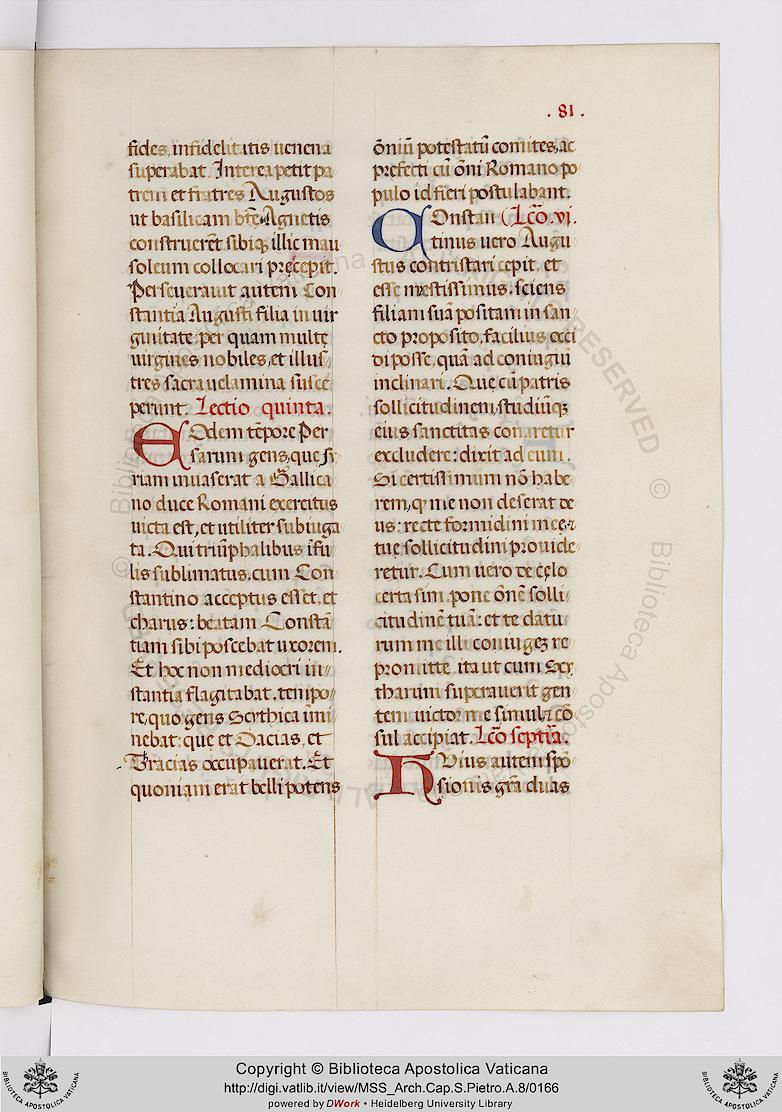 . 81 .
fides, infidelitatis uenena
superabat. Interea petit pa
trem et fratres Augustos
ut basilicam btẽ Agnetis
construerẽt sibiq; illic mau
soleum collocari pręcepit.
Perseuerauit autem Con
stantia Augusti filia in uir
ginitate: per quam multę
uirgines nobiles, et illus
tres sacra uelamina susce
perunt. Lectio quinta.
EOdem tẽpore Per
sarum gens, que si
riam inuaserat a Gallica
no duce Romani exercitus
uicta est, et utiliter subiuga
ta. Qui triũphalibus ĩfu
lis sublimatus, cum Con
stantino acceptus esset, et
charus: beatam Constã
tiam sibi poscebat uxorem.
Et hoc non mediocri in
stantia flagitabat, tempo
re, quo gens Scythica ĩmi
nebat: que et Dacias, et
Tracias occupauerat. Et
quoniam erat belli potens
õniũ potestatũ comites, ac
pręfecti cũ õni Romano po
pulo id fieri postulabant.
COnstan Lc̃o. vj.
tinus uero Augu
stus contristari cepit, et
esse mæstissimus. sciens
filiam suã positam in san
cto proposito, facilius occi
di posse, quã ad coniugiũ
inclinari. Que cũ patris
sollicitudinem, studiũq;
eius sanctitas conaretur
excludere: dixit ad eum.
Si certissimum nõ habe
rem, q me non deserat de
us: recte formidini meę, 
tuę sollicitudini prouide
retur. Cum uero de cęlo
certa sim, pone õnẽ solli
citudinẽ tuã: et te datu
rum me illi coniugẽ re
promitte, ita ut cum Scy
tharum superauerit gen
tem uictor me simul, cõ
sul accipiat. Lc̃o septĩa.
HUius autem spo
sionis grã duas
© Biblioteca Apostolica Vaticana
Copyright © Biblioteca Apostolica Vaticana
http://digi.vatlib.it/view/MSS_Arch.Cap.S.Pietro.A.8/0166
powered by DWork • Heidelberg University Library
BIBLIOTECA APOSTOLICA VATICANA
BIBLIOTECA APOSTOLICA VATICANA